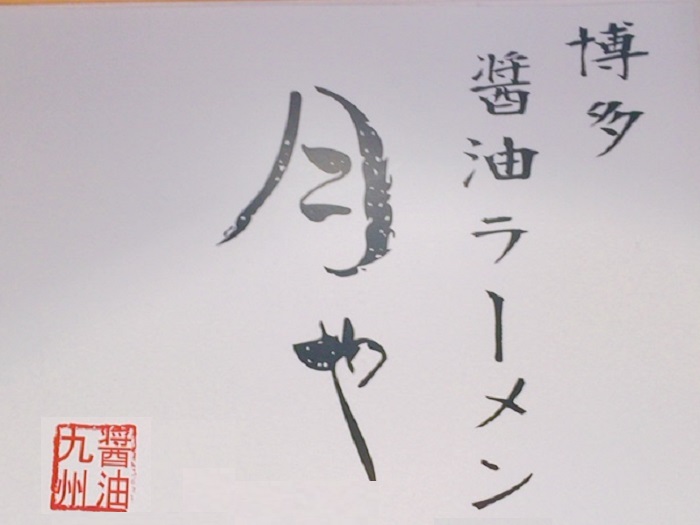 博多
醤油ラーメン
月や
醤油
九州